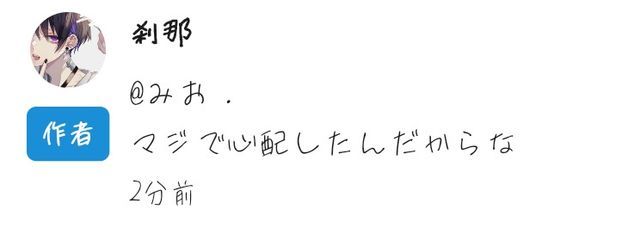 刹那
@みお .
作者
マジで心配したんだからな
2分前